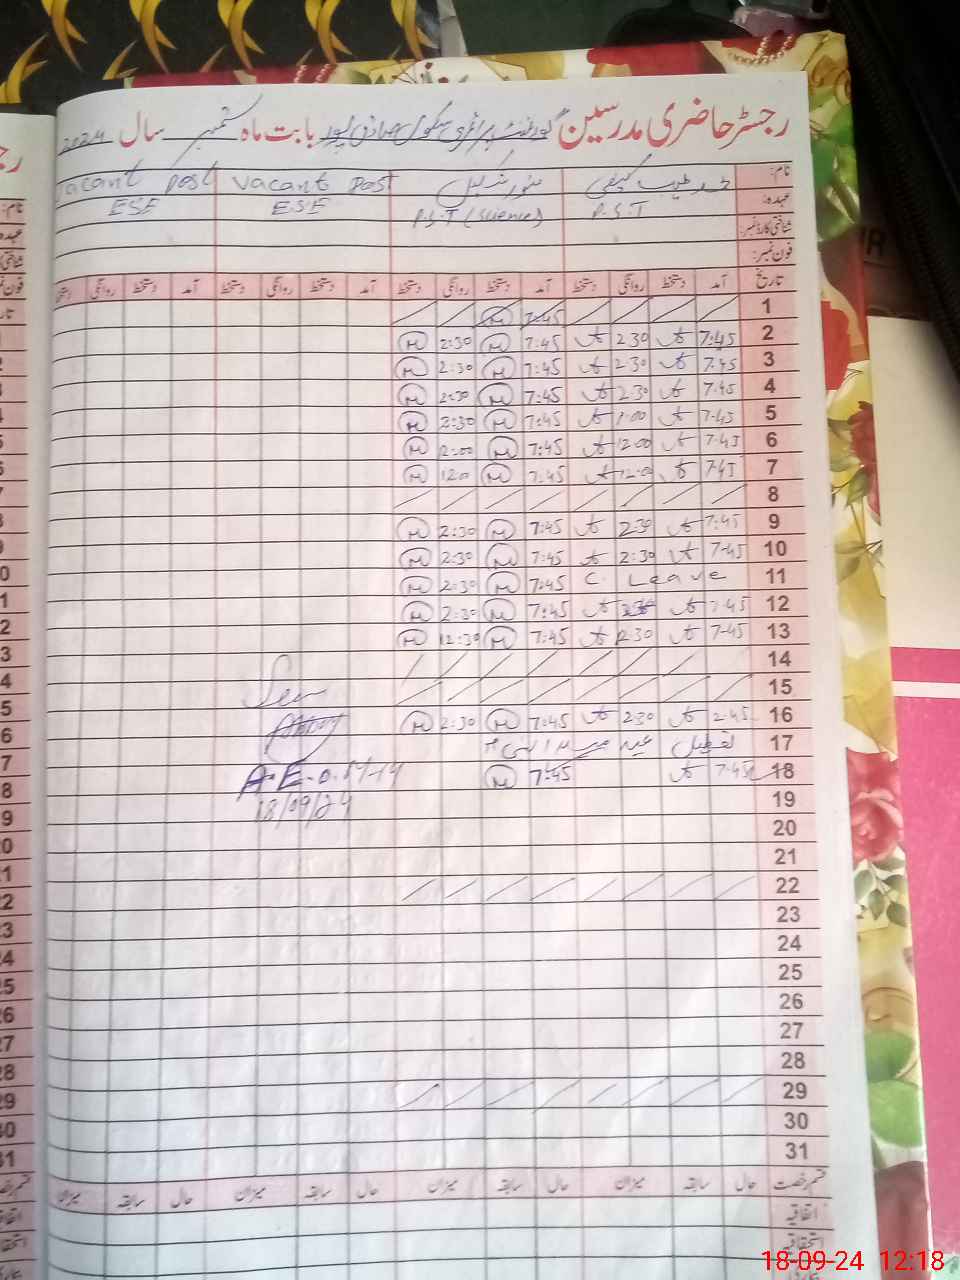 رجسٹر حاضری مدرسین گورنمنٹ پرائمری سکول بابت ماہ ستمبر سال 2024
نام: Vacant Post vacant Post
عہدہ: P.S.T P.S.T (Science) E.S.E ESE
شناختی کارڈ نمبر:
فون نمبر:
تاریخ آمد دستخط روانگی دستخط آمد دستخط روانگی دستخط آمد دستخط روانگی دستخط آمد دستخط روانگی دستخط
1 7:45 M
2 7:45 2:30 7:45 M 2:30 M
3 7:45 2:30 7:45 M 2:30 M
4 7:45 2:30 7:45 M 2:30 M
5 7:45 1:00 7:45 M 2:30 M
6 7:45 12:00 7:45 M 2:00 M
7 7:45 12:00 7:45 M 1200 M
8
9 7:45 2:30 7:45 M 2:30 M
10 7:45 2:30 7:45 M 2:30 M
11 C. Leave 7:45 M 2:30 M
12 7:45 7:45 M 2:30 M
13 7:45 7:45 M 12:30 M
14
15
16 2:45 2:30 7:45 M 2:30 M
17 تعطیل عید میلاد النبی
18 7:45 7:45 M
19
20
21
22
23
24
25
26
27
28
29
30
31
Seen
A.E.O
18/09/24
قسم رخصت حال سابقہ میزان حال سابقہ میزان حال سابقہ میزان حال سابقہ میزان
اتفاقیہ
استحقاقیہ
18-09-24 12:18